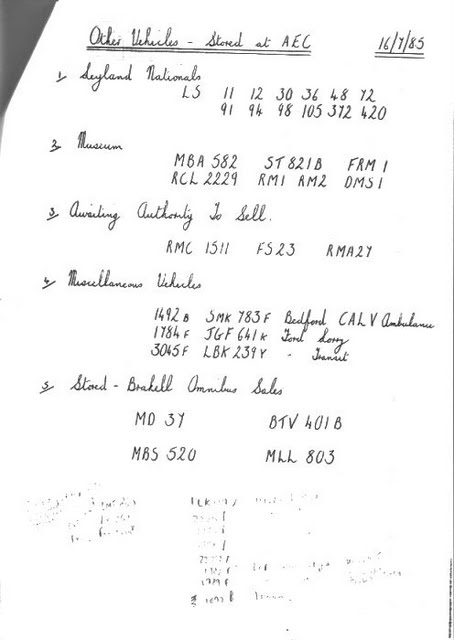 Other Vehicles - Stored at AEC 16/7/85
1, Leyland Nationals
LS 11 12 30 36 48 72
91 94 98 105 372 420
2, Museum
MBA 582 ST 821B FRM 1
RCL 2229 RM1 RM2 DMS1
3, Awaiting Authority To Sell.
RMC 1511 FS23 RMA27
4, Miscellaneous Vehicles
1492B SMK 783F Bedford CALV Ambulance
1784F JGF 641K Ford Lorry
3045F LBK 239Y - Transit
5, Stored - Brakell Omnibus Sales
MD 37 BTV 401B
MBS 520 MLL 803